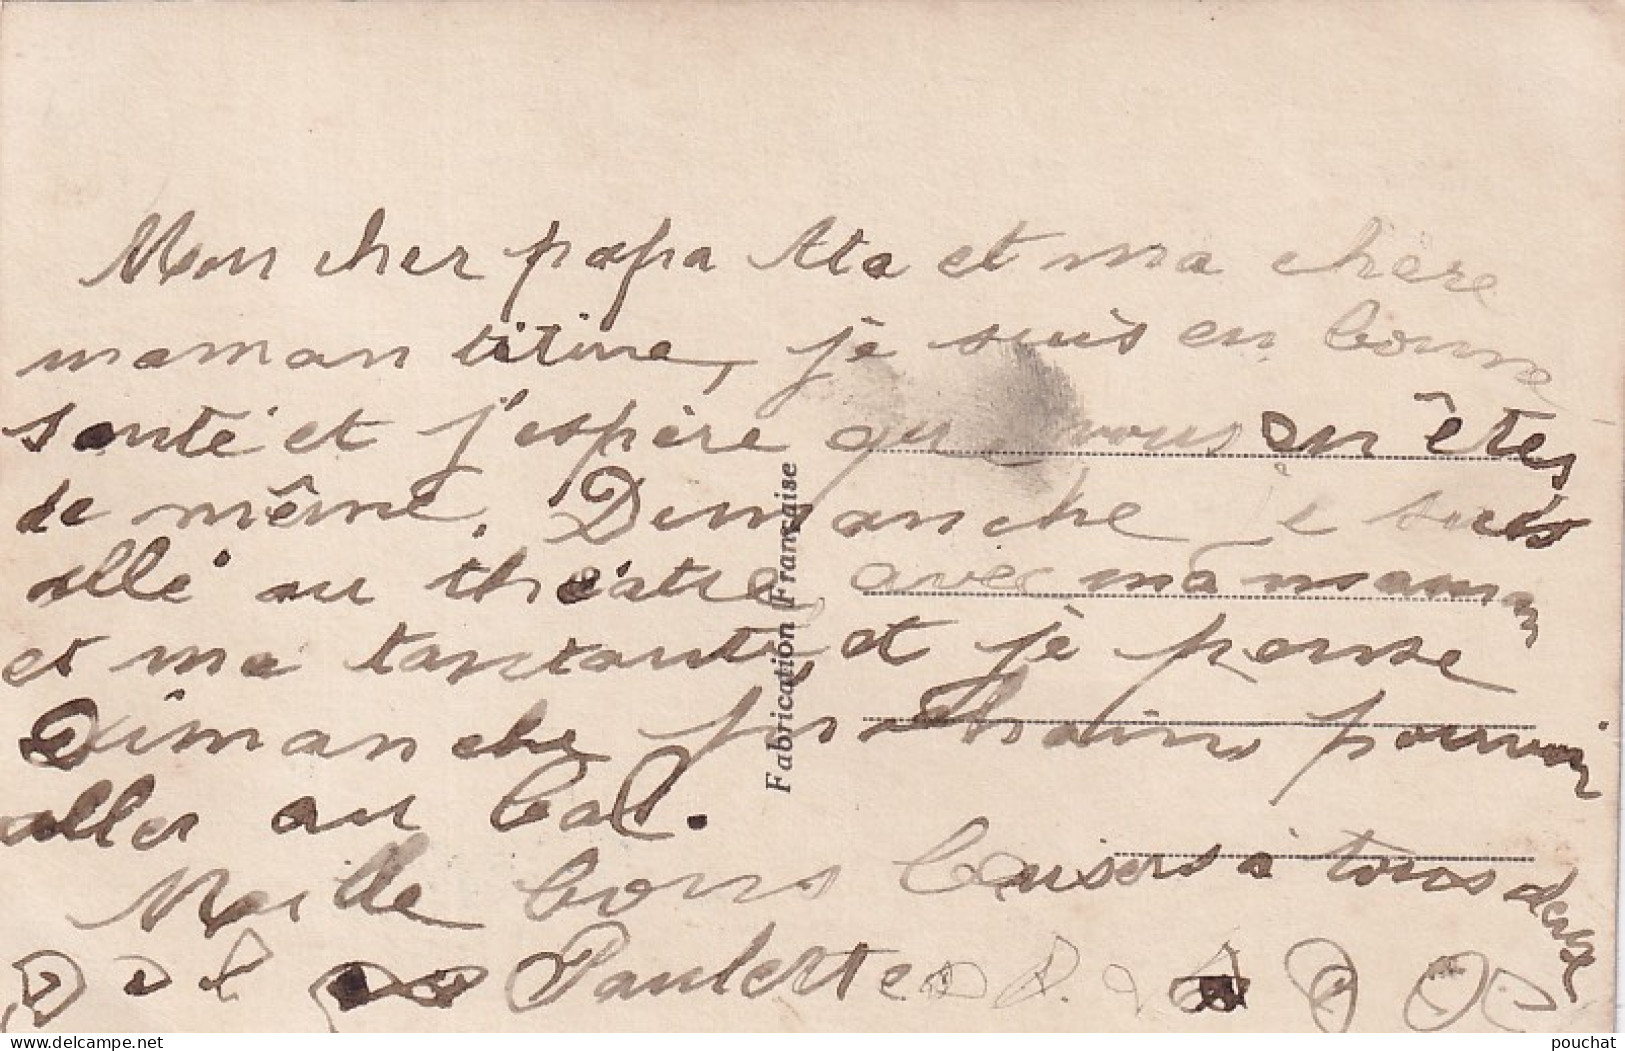 Mon cher papa tta et ma chère
maman titine, je suis en bonne
santé et j'espère que vous en êtes
de même. Dimanche je suis
allé au théâtre avec ma maman
et ma tantante, et je pense
Dimanche prochains pouvoir
aller au bal.
Maille bons baisers à tous deux
Paulette
Fabrication Française
www.delcampe.net
pouchat